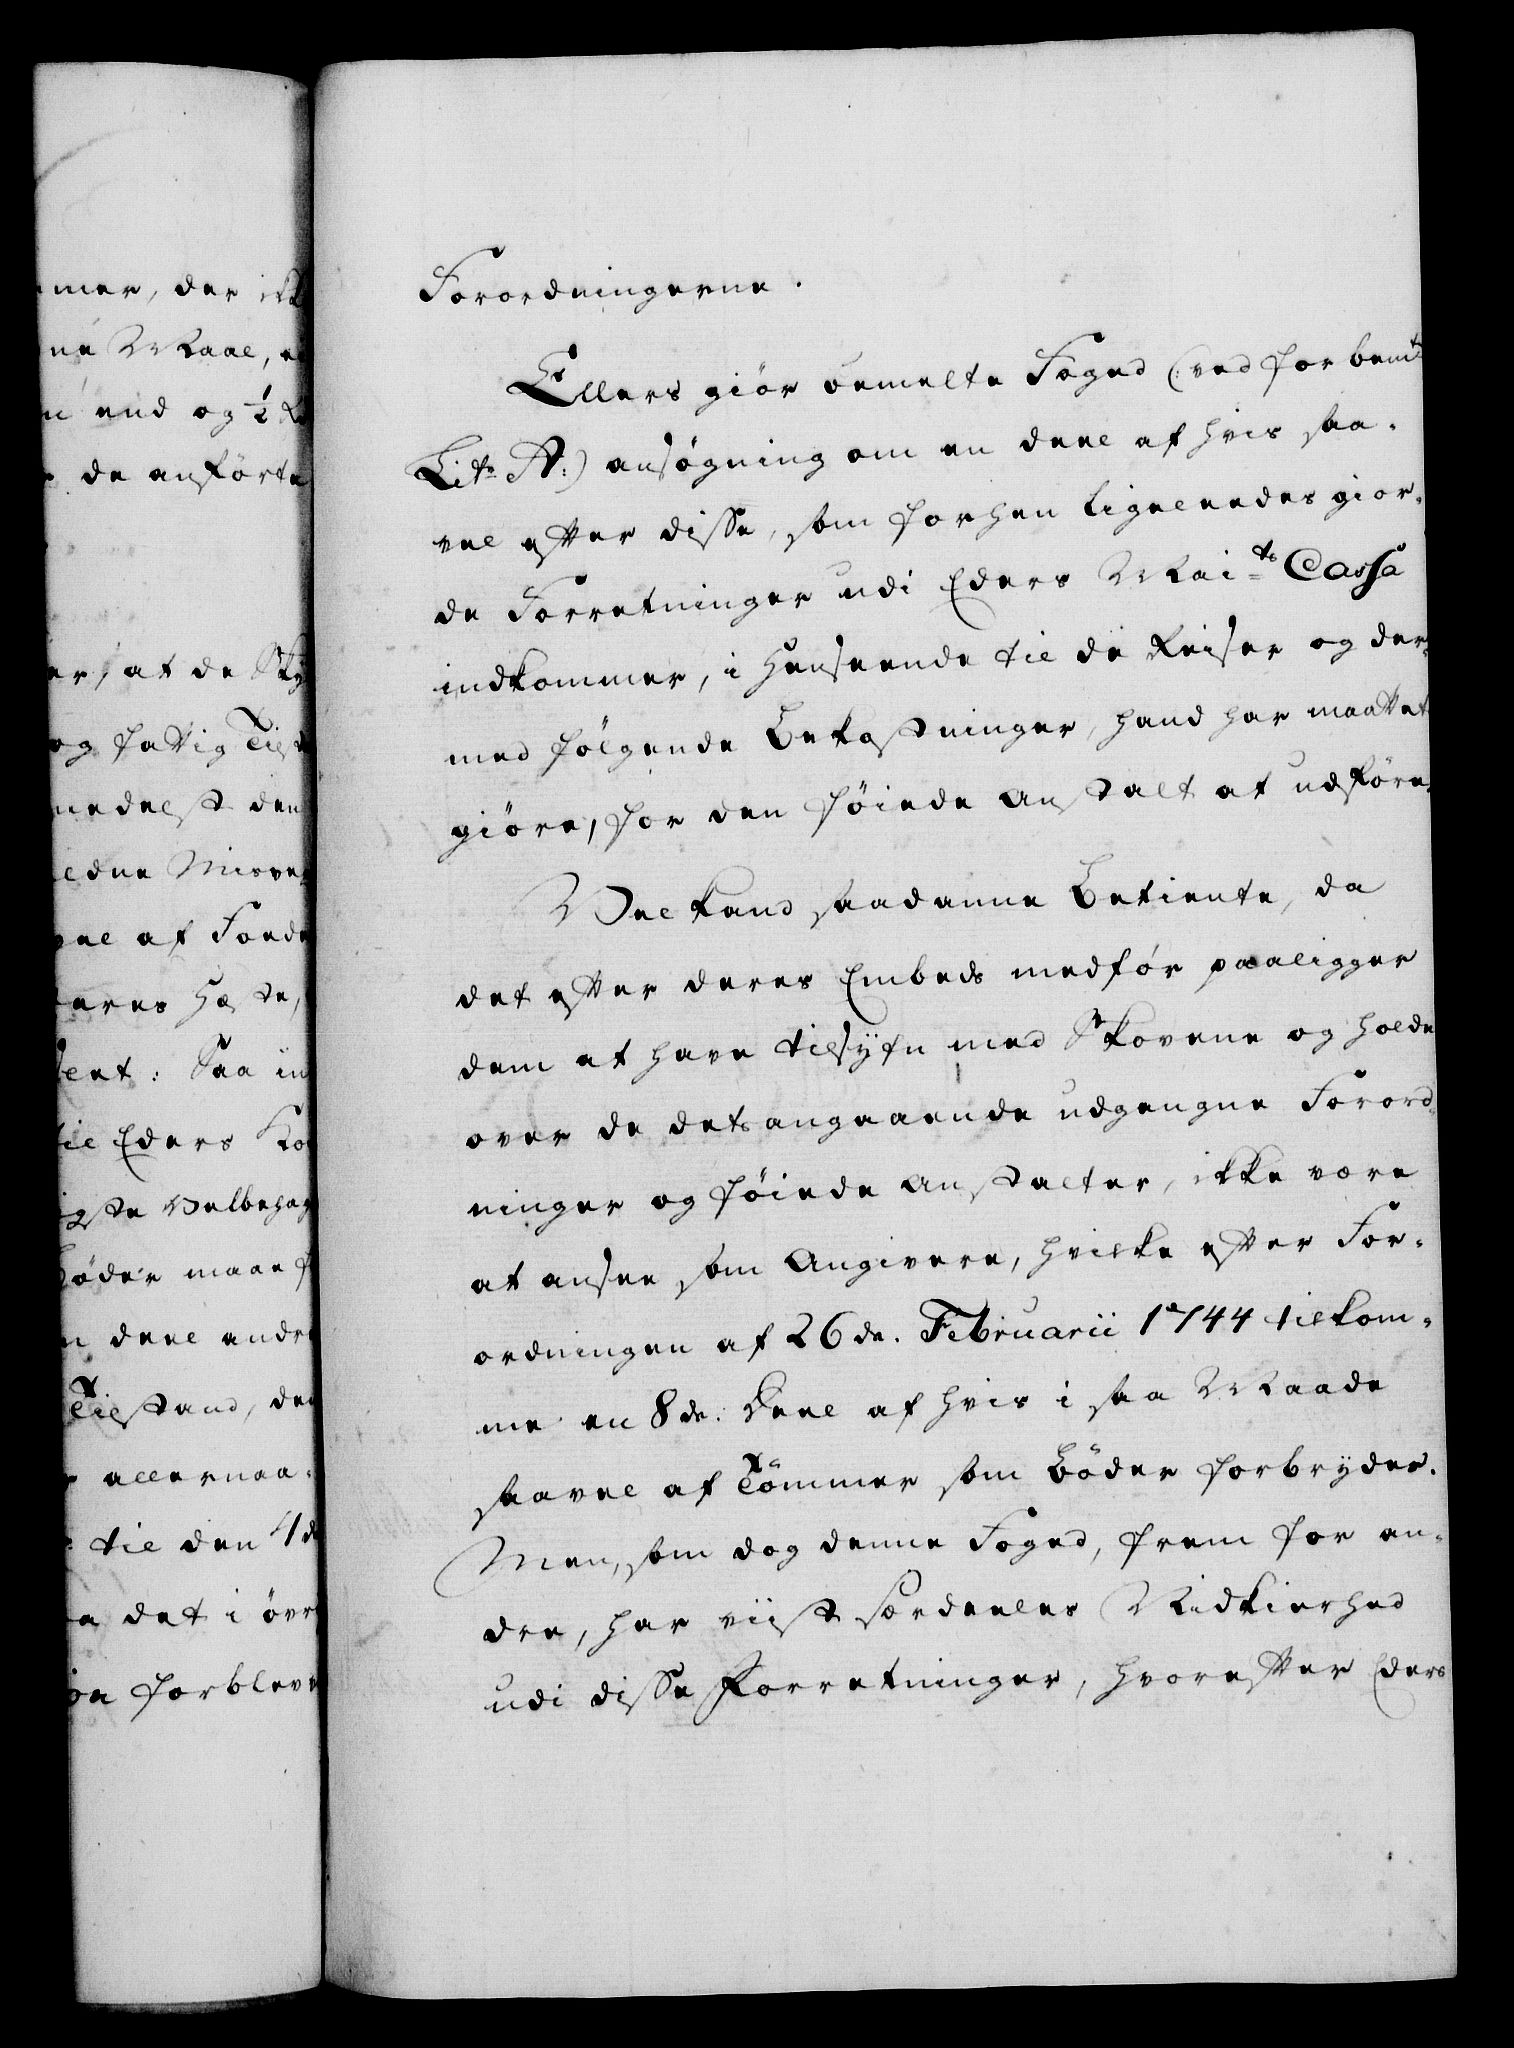 mmer, der ikk
ne Maal, e
n end og ½ 
de anførte
er, at de Sky
og fattig Tilst
medelst den
eldne Misve
vel af Foede
deres Hæste,
lent: Saa in
til Eders Ko
igste Velbehag
Bøder maae f
n deel andre
Tilstand, den
allernaa-
til den 4de
a det i øvr
on forbleve
Forordningerne.
Ellers giør bemelte Foged (: ved forbemte
Litr A:) ansøgning om en deel af hvis saa-
vel efter disse, som forhen ligeleedes gior-
de Forretninger udi Eders Maits Cassa
indkommer, i Henseende til de Reiser og der-
med følgende Bekostninger, hand har maattet
giøre, for den føiede Anstalt at udføre.
Vel kand saadanne Betiente, da
det efter deres Embeds medfør paaligger
dem at have tilsyn med Skovene og holde
over de detsangaaende udgangne Forord-
ninger og føiede Anstalter, ikke være
at ansee som Angivere, hvilke efter For-
ordningen af 26de Februarii 1744 tilkom-
me en 8de. Deel af hvis i saa Maade
saavel af Tømmer som Bøder forbrydes.
Men, som dog denne Foged, frem for an-
dre, har viist særdeeles Nidkierhed
udi disse Forretninger, hvorefter Eders